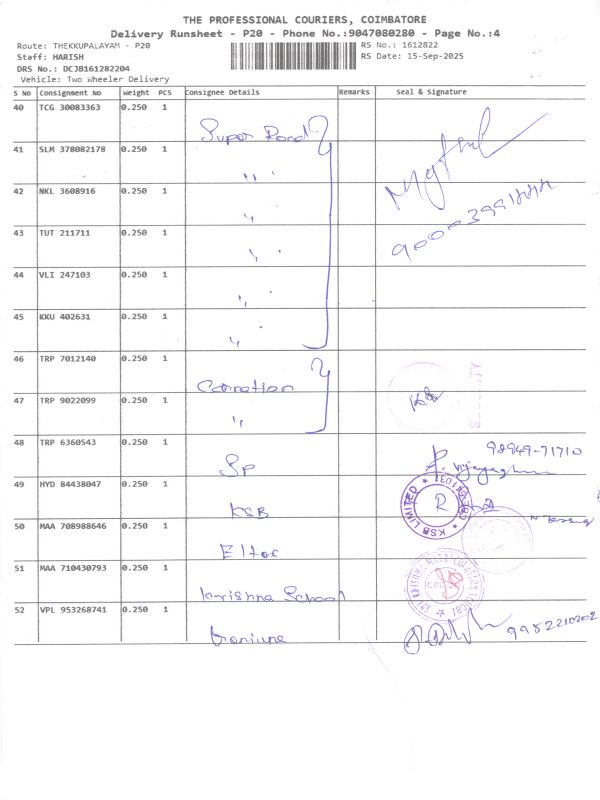 THE PROFESSIONAL COURIERS, COIMBATORE
Delivery Runsheet - P20 - Phone No.:9047080280 - Page No.:4
Route: THEKKUPALAYAM - P20 RS No.: 1612822
Staff: HARISH RS Date: 15-Sep-2025
DRS No.: DCJB161282204
Vehicle: Two Wheeler Delivery
S No Consignment No Weight PCS Consignee Details Remarks Seal & Signature
40 TCG 30083363 0.250 1 Super Road
41 SLM 378082178 0.250 1 "
42 NKL 3608916 0.250 1 "
43 TUT 211711 0.250 1 "
44 VLI 247103 0.250 1 "
45 KKU 402631 0.250 1 "
46 TRP 7012140 0.250 1 Carnation
47 TRP 9022099 0.250 1 "
48 TRP 6360543 0.250 1 SP 98949-71710
49 HYD 84438047 0.250 1 KSB KSB LIMITED
50 MAA 708988646 0.250 1
51 MAA 710430793 0.250 1 Krishna School
52 VPL 953268741 0.250 1 9952210202